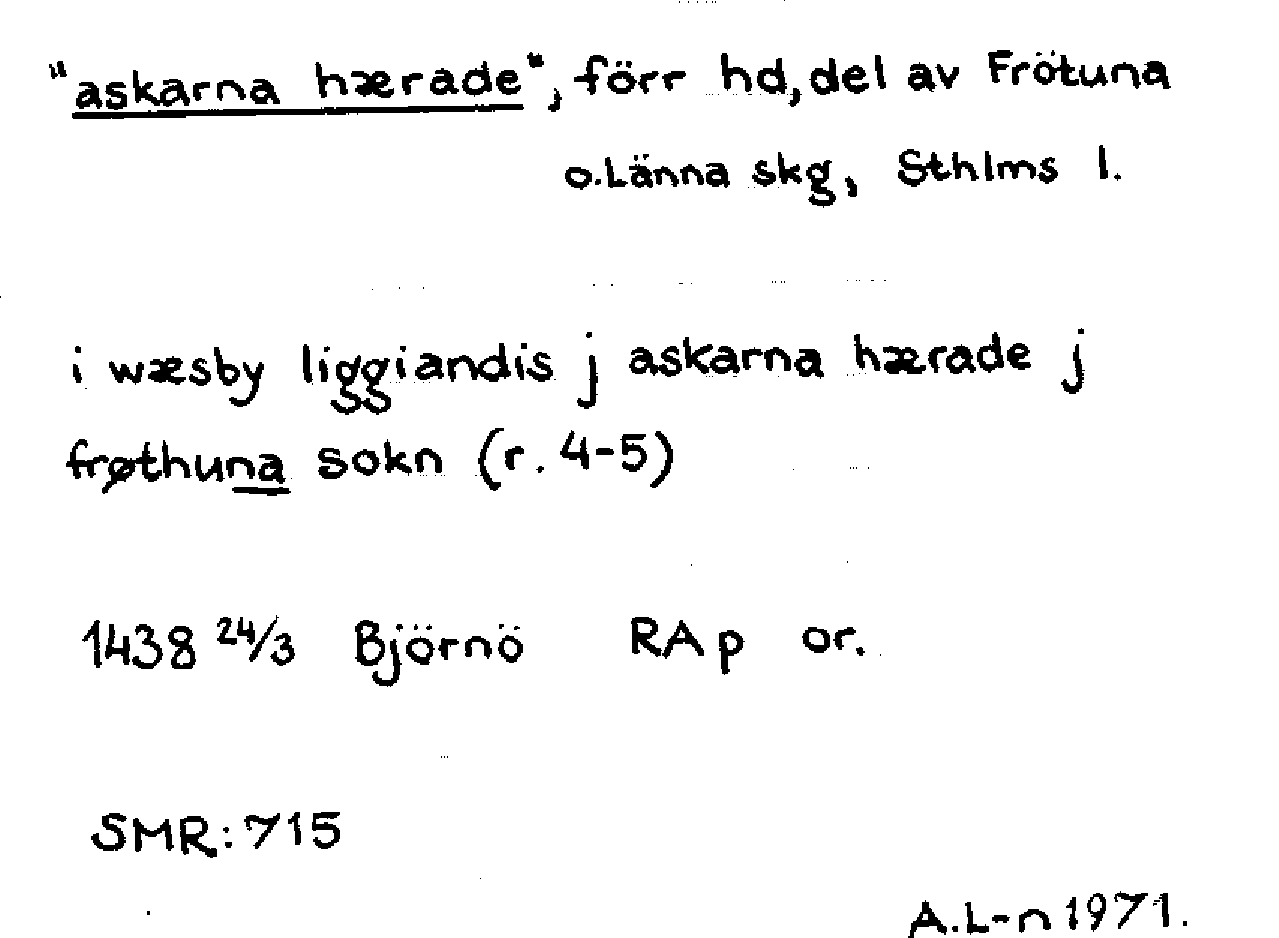 "askarna hærade", förr hd, del av Frötuna
o. Länna skg, Sthlms l.
i wæsby liggiandis j askarna hærade j
frøthuna sokn (r. 4-5)
1438 24/3 Björnö RAp or.
SMR: 715
A.L-n 1971.